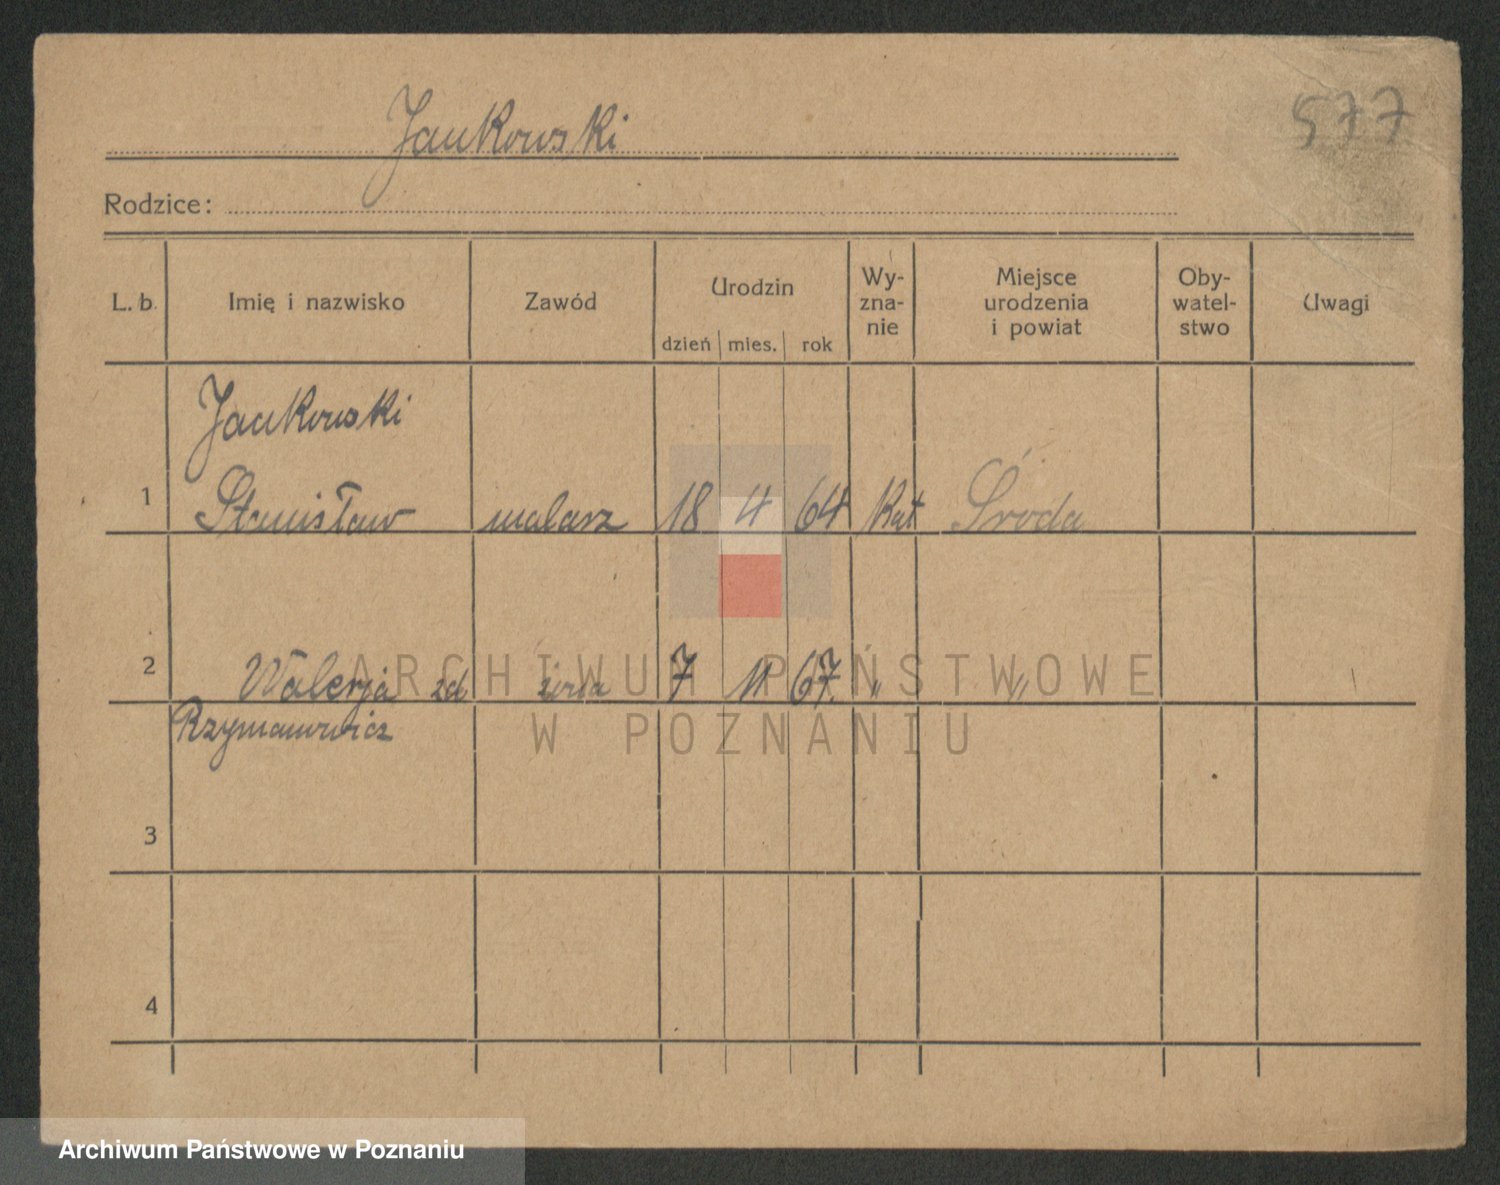 577
Jankowski
Rodzice:
L. b. Imię i nazwisko Zawód Urodzin dzień mies. rok Wy-zna-nie Miejsce urodzenia i powiat Oby-watel-stwo Uwagi
Jankowski
1 Stanisław malarz 18 4 64 Kat Środa
2 Walerja zd żona 7 11 67 " "
Rzymanowicz
3
4
ARCHIWUM PAŃSTWOWE
W POZNANIU
Archiwum Państwowe w Poznaniu